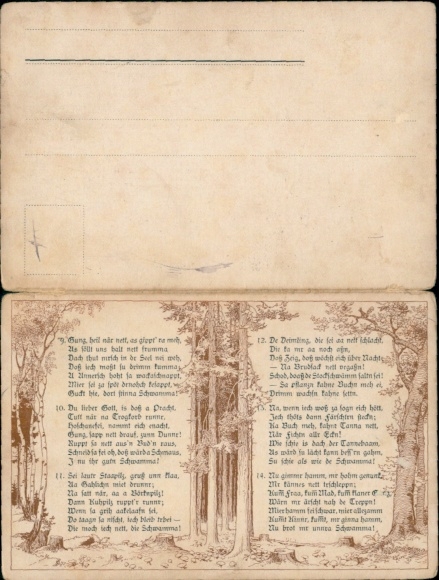 9. Gung, heil när nett, as gippt' ra meh,
As söllt uns halt nett frumma
Dach thut mrsch in dr Seel nei weh,
Doß iech moßt su drimm kumma;
U Unnersch hoht sa wackaschnappt,
Mier sei ja spöt
Guckt hie, dort stinna Schwamma!
10. Du lieber Gott, is doß a Pracht.
Tutt när na Trogkorb runner,
nammt eich enacht.
Gung, sapp nett drauf, zunn Dunner!
Ruppt sa nett aus'n Bud'n raus,
Schneid'sa fei oh, doß wärda Schmaus,
J nu ihr gutn Schwamma!
11. Sei laute Staapilz, gruß unn klaa,
Na Gahlichn miet drunner;
Na satt när, aa a Börknpilz!
Vonn Kuhpilz rupp'r runner,
Wenn sa grih aakelaafn sei.
Do taagn sa nischt, iech bleib drbei —
Die moch iech nett, die Schwamma!
12. De Deimling, die sei aa nett schlacht.
Die ko mr sa noch ohn,
Doß Zeig, doß wöchst eich über Nacht;
— Na Brudlack nett
Schod, dooß de Stockschwämm
— Sa pflanzn kahne Buchn meh ei,
Drimm wachsn kahne settn.
13. Na, wenn iech woß za sogn eich hött,
Jech thöts dann Färschtrn steckn;
Aa Buch meh, kahne Tanna nett,
När Fichtn allr Eckn!
Wie schie is dach dr Tannebaam.
As wärd su lächt kann bess'rn gahm,
Su schie als wie de Schwamma!
14. Nu gimmr hamm, mr hohm genunk,
Mr kännes nett drschleppn;
Kumm Fraa, kumm Mad, kumm klaner
Wärn mr ärscht nah de Treppn!
Mier hamm fei schwar, miet allezamm
Kummt Kinner, kummt, mr ginna hamm,
Nu brot mr unnra Schwamma!